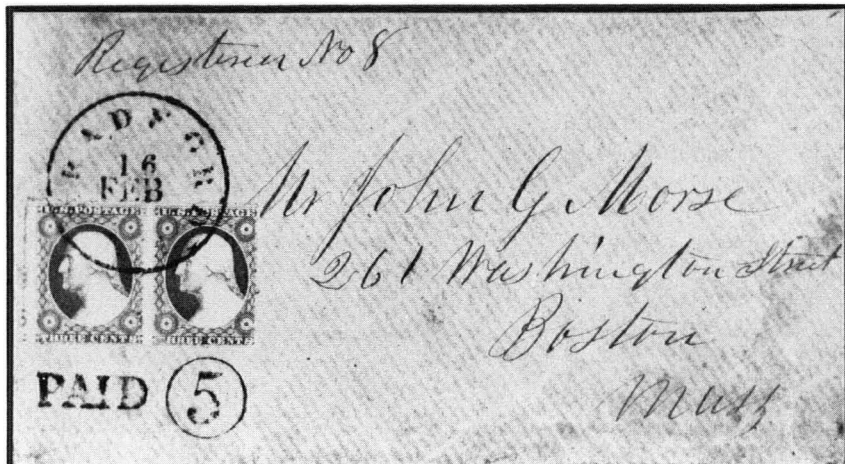 Registered No 8
16
FEB
Mr John G Morse
261 Washington Street
Boston
Mass
U.S. POSTAGE U.S. POSTAGE
THREE CENTS THREE CENTS
PAID 5